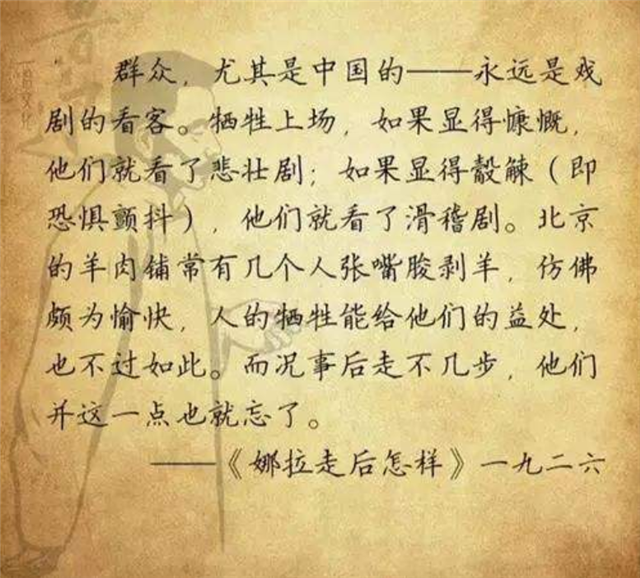 群众，尤其是中国的——永远是戏
剧的看客。牺牲上场，如果显得慷慨，
他们就看了悲壮剧；如果显得觳觫（即
恐惧颤抖），他们就看了滑稽剧。北京
的羊肉铺常有几个人张嘴胶剥羊，仿佛
颇为愉快，人的牺牲能给他们的益处，
也不过如此。而况事后走不几步，他们
并这一点也就忘了。
——《娜拉走后怎样》一九二六